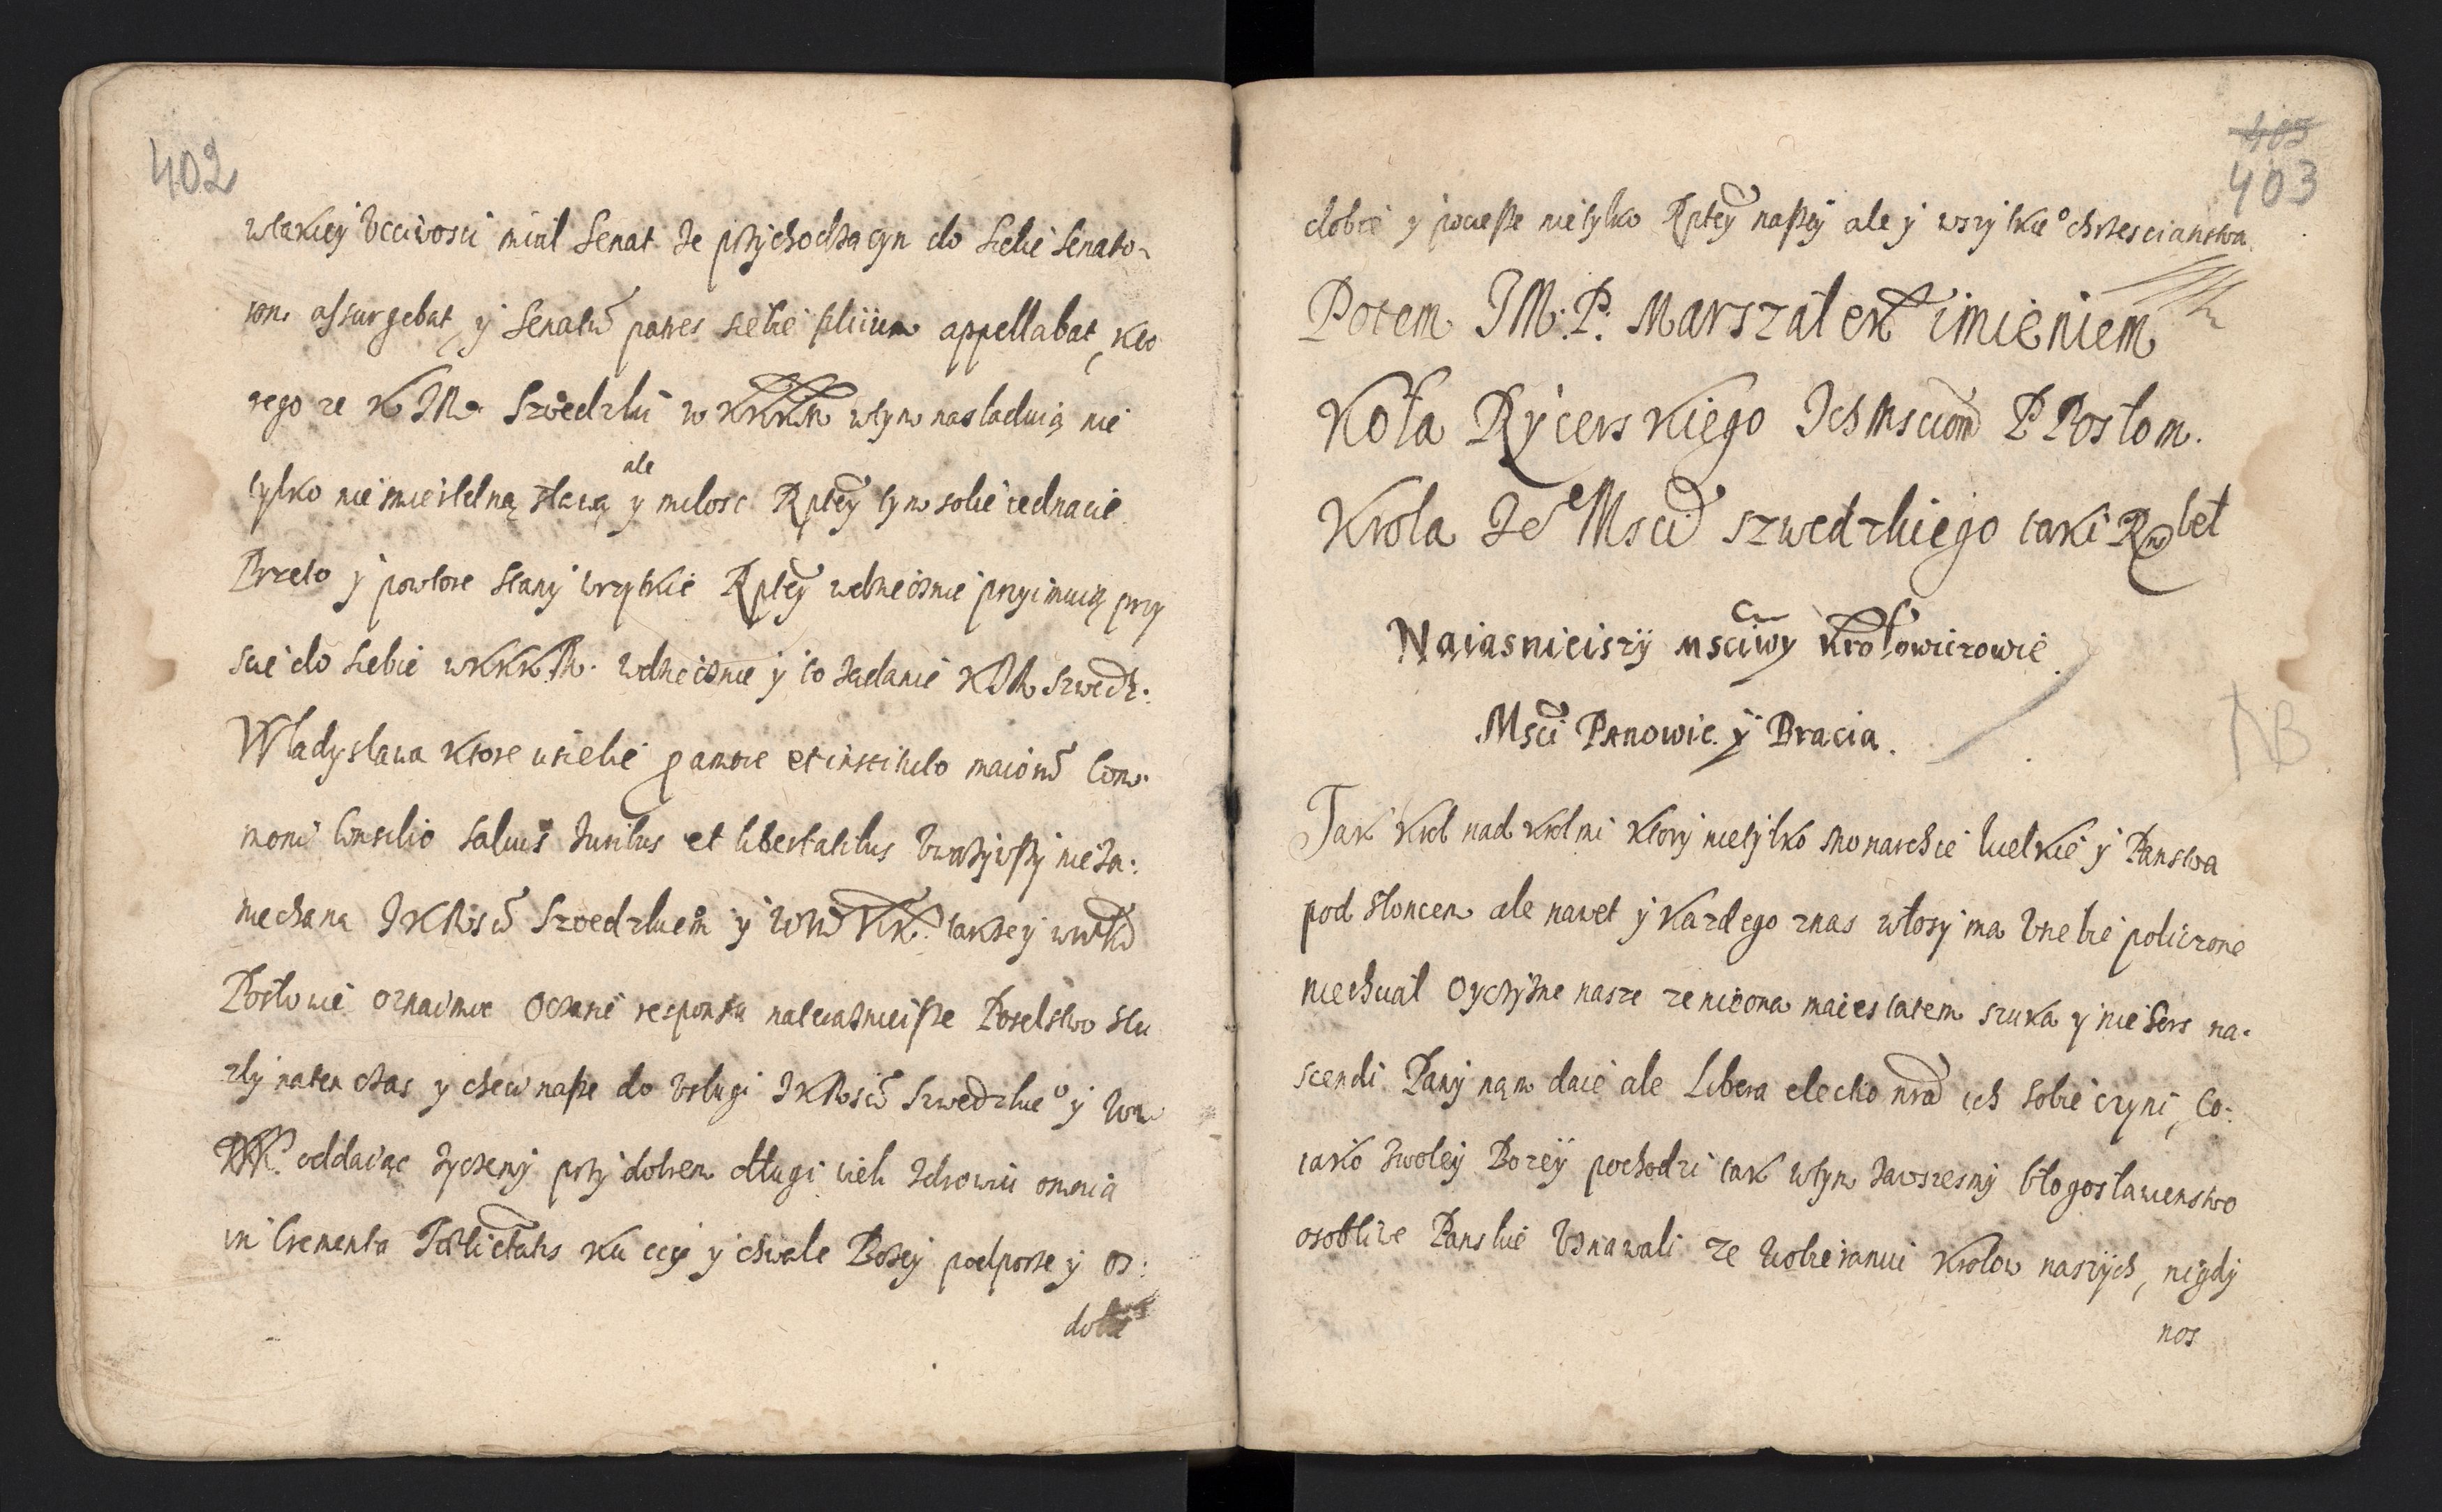 402
wtakiey Vcciwosci miał Senat ze przychodzacym do siebie senato-
rom assurgebat, y Senatū patres siebie filium appellabat, kto
rego ze KJM Szwedzki w KKKM wtym nasladuią nie
tylko niesmiertelną sławą ale y miłosc Rptey tym sobie iednacie
Przeto y powtore stany wszytkie Rptey wdzięcznie przyimuią przy
scie do siebie WKKKM. wdzięcznie y to żądanie KJM Szwedz:
Władysława ktore usiebie pro more et instituto maiorū Com-
moni Consilio salvis Juribus et libertatibus uważywszy nieza:
niechaną JKMsci Szwedzkiem y takze y
Posłowie oznaimic Oczanie responsu nato Poselstwo słu
zły naten czas y checi nasze do Vsługi JKMsci Szwedzkieo y
oddaiąc zyczemy przy dobrem długi wiek zdrowiu omnia
in Crementa Foelicitatis ku czci y chwale Bozey podporze y oz:
dobie
405
403
dobie y pociesze nietylko Rptey naszey ale y wszytkieo chrzescianstwa
Potem JM.P. Marszałek imieniem
Koła Rycerskiego Ich Msciom P Posłom.
Krola Je Msci szwedzkiego taki Rndbet
Naiasnieiszy Msciwy Krolowiczowie.
Msci Panowie y Bracia.
NB
Tak Krol nad krolmi ktory nietylko Monarchie wielkie y Panstwa
pod słoncem ale nawet y kazdego znas włosy ma Vnebie policzone
niechciał Oyczyzne nasze ze nieona maiestatem szuka y nie Sors na-
scendi Pany nąm daie ale Libera electio nrad ich sobie czyni, Co:
iako zwoley Bozey pochodzi tak wtym zawszesmy błogosławienstwo
osobliwe Panskie Vznawali ze wobieraniu Krolow naszych, nigdy
nos